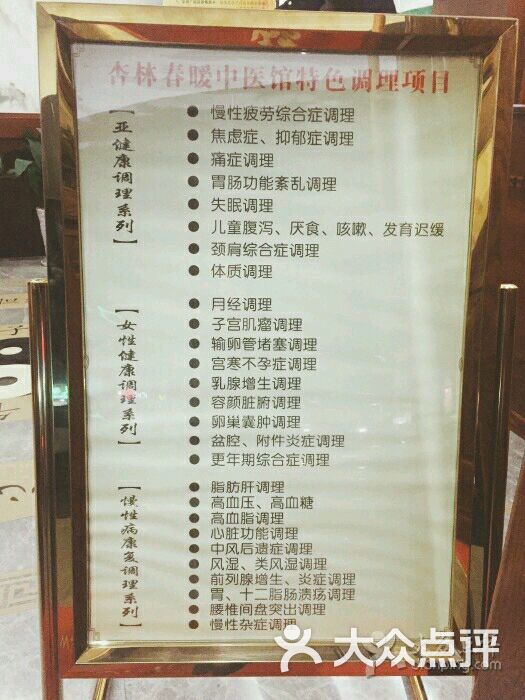 杏林春暖中医馆特色调理项目
【亚健康调理系列】
● 慢性疲劳综合症调理
● 焦虑症、抑郁症调理
● 痛症调理
● 胃肠功能紊乱调理
● 失眠调理
● 儿童腹泻、厌食、咳嗽、发育迟缓
● 颈肩综合症调理
● 体质调理
【女性健康调理系列】
● 月经调理
● 子宫肌瘤调理
● 输卵管堵塞调理
● 宫寒不孕症调理
● 乳腺增生调理
● 容颜脏腑调理
● 卵巢囊肿调理
● 盆腔、附件炎症调理
● 更年期综合症调理
【慢性病康复调理系列】
● 脂肪肝调理
● 高血压、高血糖
● 高血脂调理
● 心脏功能调理
● 中风后遗症调理
● 风湿、类风湿调理
● 前列腺增生、炎症调理
● 胃、十二脂肠溃疡调理
● 腰椎间盘突出调理
● 慢性杂症调理
大众点评